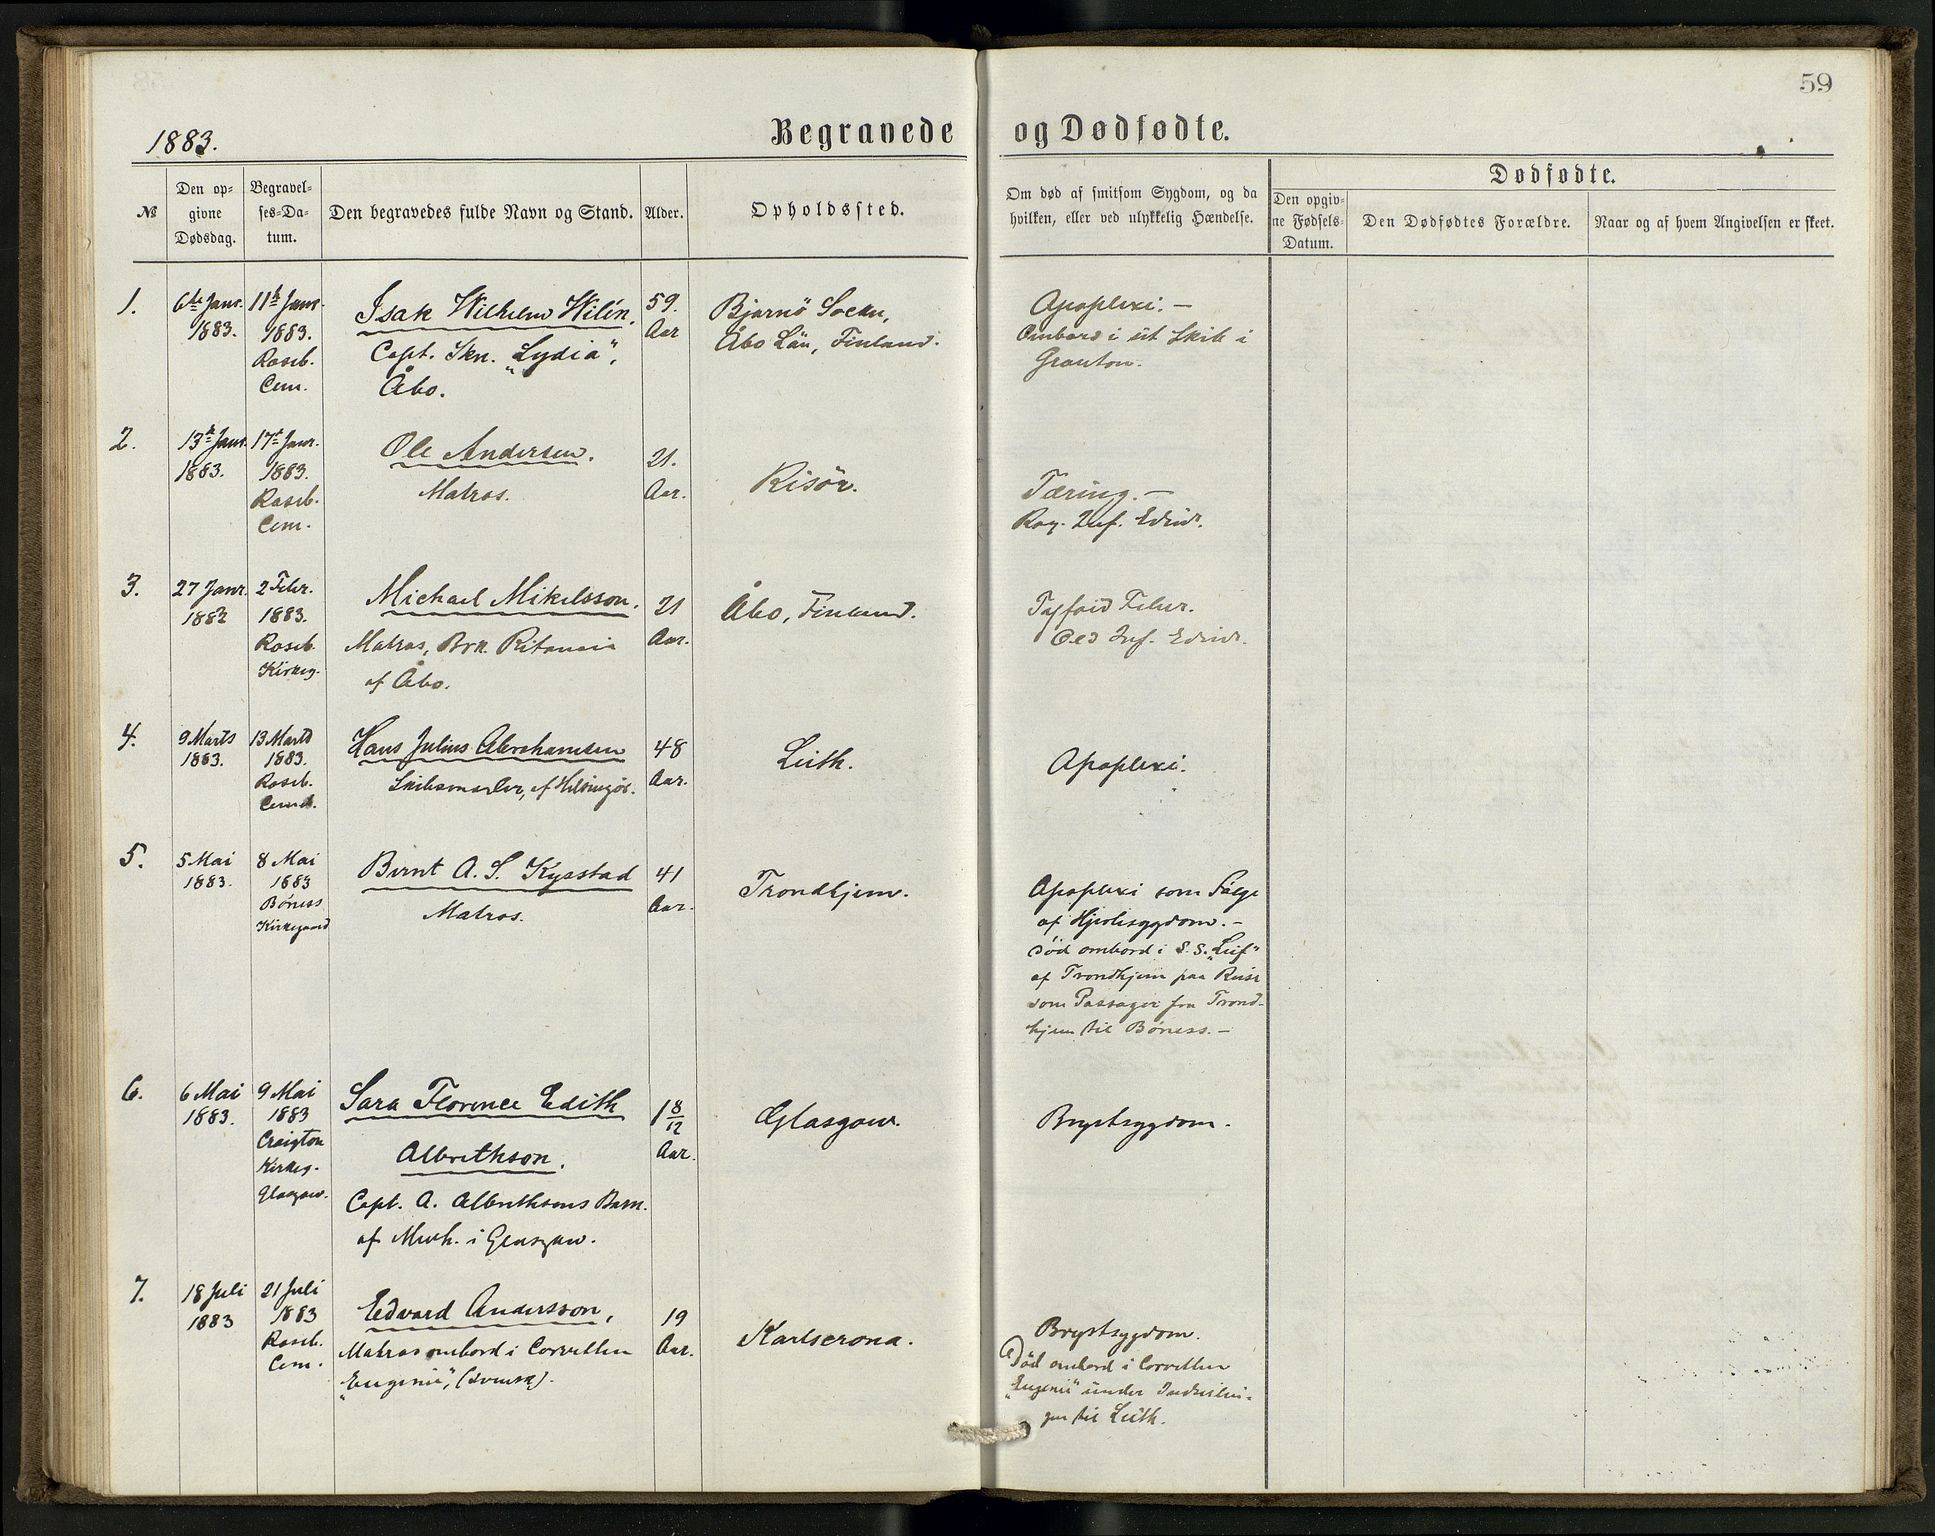 59
1883.
Begravede og Dødfødte.
№
Den op-
givne
Dødsdag.
Begravel-
ses-Da-
tum.
Den begravedes fulde Navn og Stand.
Alder.
Opholdssted.
Om død af smitsom Sygdom, og da
hvilken, eller ved ulykkelig Hændelse.
Dødfødte.
Den opgiv-
ne Fødsels-
Datum.
Den Dødfødtes Forældre.
Naar og af hvem Angivelsen er skeet.
1.
6te Janr.
1883.
11te Janr.
1883.
Roseb.
Cem.
Isak Wilhelm Wilén,
Capt. Skn. "Lydia",
Åbo.
59.
Aar
Bjernö Socken,
Åbo Län, Finland.
Apoplexi. —
Ombord i sit Skib i
Granton.
2.
13de Janr.
1883.
17de Janr.
1883.
Roseb.
Cem.
Ole Andersen.
Matros.
21.
Aar.
Risör.
Tæring. —
Roy. Inf. Edinb.
3.
27 Janr.
1882
2 Febr.
1883.
Roseb.
Kirkeg.
Michael Mikelsson.
Matros, Brk.
af Åbo.
21
Aar.
Åbo, Finland.
Tyfoid Feber.
Old Inf. Edinb.
4.
9 Marts
1883.
13 Marts
1883.
Roseb.
Hans Julius Abrahamsen
Skibsmægler, af Helsingör.
48
Aar.
Leith.
Apoplexi.
5.
5 Mai
1883.
8 Mai
1883
Böness
Kirkegaard
Bernt A. S. Kysstad
Matros.
41
Aar.
Trondhjem.
Apoplexi som Følge
af Hjertesygdom. —
död ombord i S. S. "Leif"
af Trondhjem paa Reise
som Passager fra Trond-
hjem til Böness. —
6.
6 Mai
1883.
9 Mai
1883
Craigton
Kirkeg.
Glasgow.
Sara Florence Edith
Albrethson.
Capt. A. Albrethsons Barn.
af Merch. i Glasgow.
1 8/12
Aar.
Glasgow.
Brystsygdom.
7.
18 Juli
1883
21 Juli
1883
Roseb.
Cem.
Edvard Andersson,
Matros ombord i Corvetten
"Eugenie", (svensk).
19
Aar.
Karlscrona.
Brystsygdom.
Död ombord i Corvetten
"Eugenie" under Indseilin-
gen til Leith.